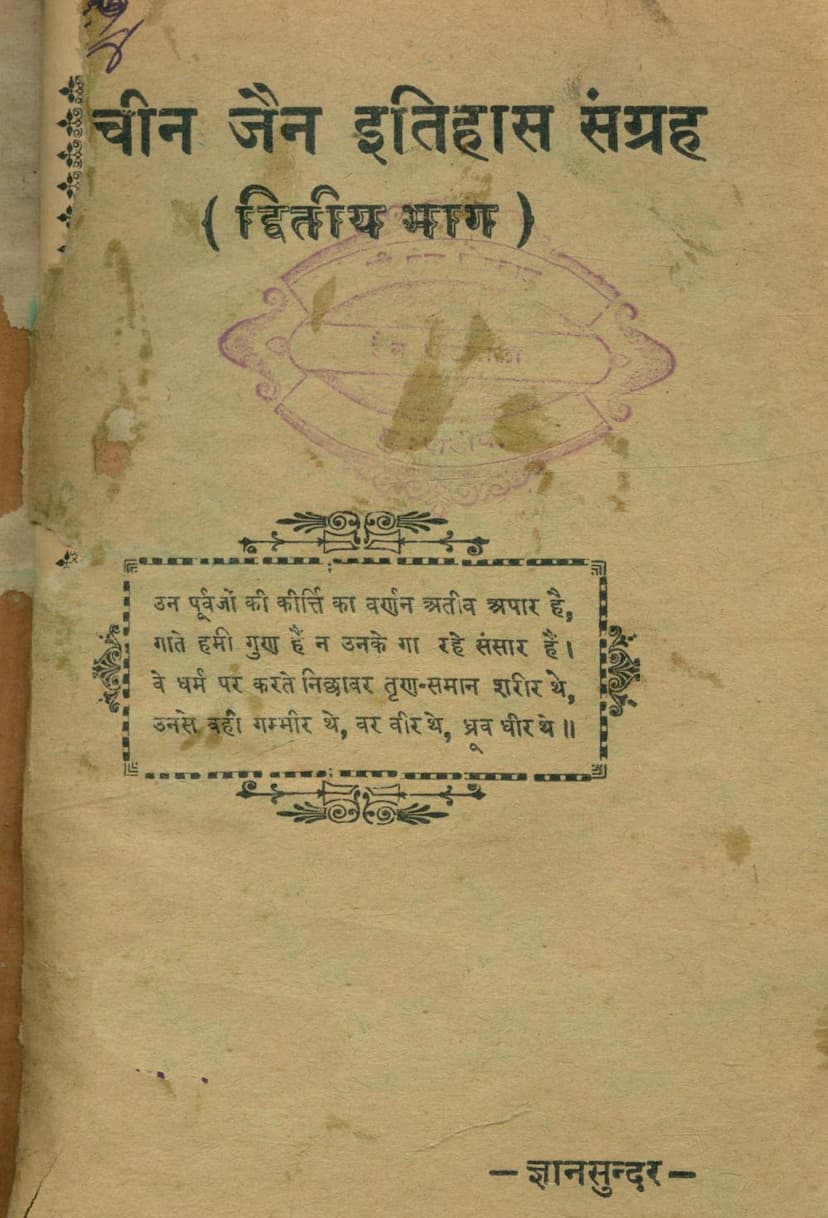 चीन जैन इतिहास संग्रह
( द्वितीय भाग )
उन पूर्वजों की कीर्त्ति का वर्णन अतीव अपार है,
गाते हमी गुण हैं न उनके गा रहे संसार हैं।
वे धर्म पर करते निछावर तृण-समान शरीर थे,
उनसे वही गम्भीर थे, वर वीर थे, ध्रूव धीर थे॥
— ज्ञानसुन्दर —